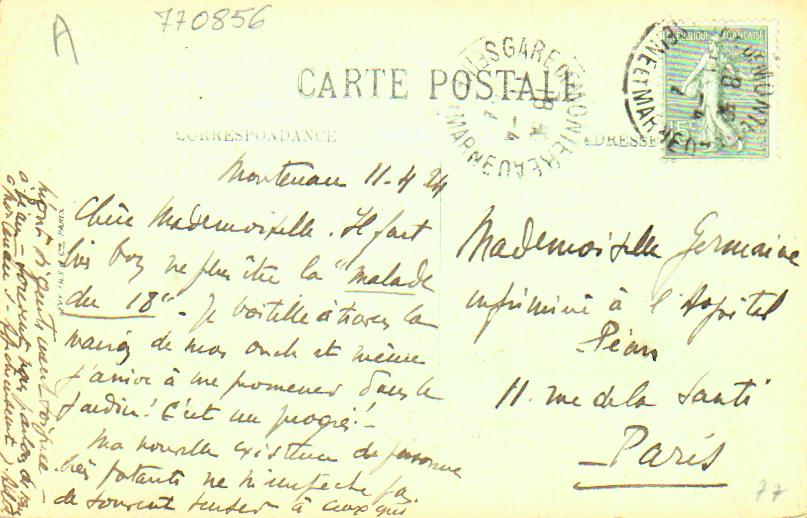 A
770856
CARTE POSTALE
CORRESPONDANCE
ADRESSE
RÉPUBLIQUE FRANÇAISE
15c
GARE DE MONTEREAU
SEINE ET MARNE
Montereau 11-4 24
Chère Mademoiselle. Il fait
très bon ne plus être la "malade
du 18". Je boitille à travers la
maison de mon oncle et même
j'arrive à me promener dans le
jardin! C'est un progrès!
Ma nouvelle existence de personne
très potante ne m'empêche pas
de souvent penser à ceux qui
m'ont si gentiment soignée
souvent nous parlons de
Mademoiselle Germaine
infirmière à l'Hôpital
Péan
11. rue de la Santé
Paris
77